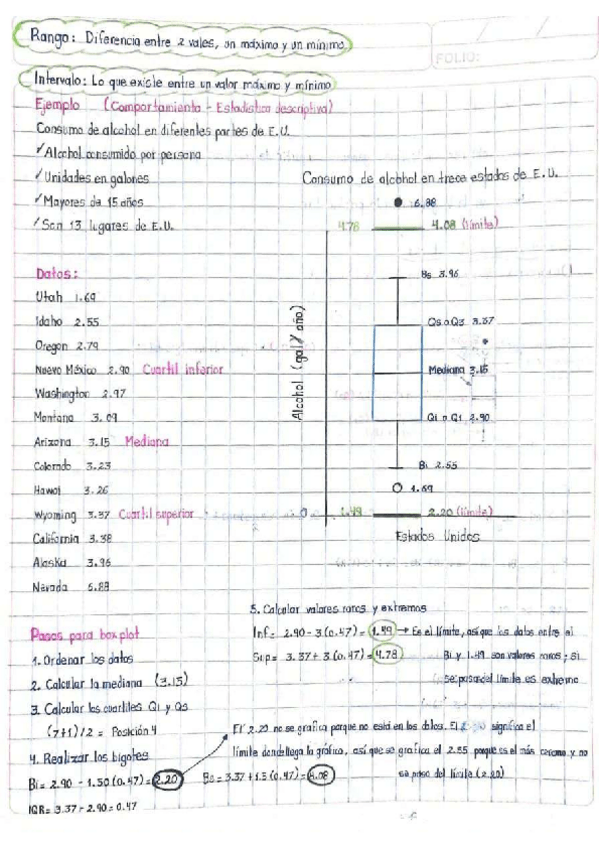 Rango: Diferencia entre 2 vales, un máximo y un mínimo
FOLIO:
Intervalo: Lo que existe entre un valor máximo y mínimo
Ejemplo (Comportamiento - Estadística descriptiva)
Consumo de alcohol en diferentes partes de E.U.
✓Alcohol consumido por persona
✓Unidades en galones
✓Mayores de 15 años
✓Son 13 lugares de E.U.
Datos:
Utah 1.69
Idaho 2.55
Oregon 2.79
Nuevo México 2.90 Cuartil inferior
Washington 2.97
Montana 3.09
Arizona 3.15 Mediana
Colorado 3.23
Hawai 3.26
Wyoming 3.37 Cuartil superior
California 3.38
Alaska 3.96
Nevada 6.88
Consumo de alcohol en trece estados de E.U.
6.88
4.78 4.08 (límite)
Bs 3.96
Qs o Q3 3.37
Mediana 3.15
Qi o Q1 2.90
Bi 2.55
1.69
0 1.49 2.20 (límite)
Alcohol (gal/año)
Estados Unidos
Pasos para boxplot
1. Ordenar los datos
2. Calcular la mediana (3.15)
3. Calcular los cuartiles Qi y Qs
(7+1)/2 = Posición 4
4. Realizar los bigotes
Bi = 2.90 - 1.50(0.47) = 2.20
Bs = 3.37 + 1.5(0.47) = 4.08
IQR = 3.37 - 2.90 = 0.47
5. Calcular valores raros y extremos
Inf = 2.90 - 3(0.47) = 1.49 → Es el límite, así que los datos entre el
Sup = 3.37 + 3(0.47) = 4.78 Bi y 1.49 son valores raros; si
se pasan del límite es extremo
El 2.20 no se grafica porque no está en los datos. El significa el
límite donde llega la gráfica, así que se grafica el 2.55 porque es el más cercano y no
se pasa del límite (2.20)